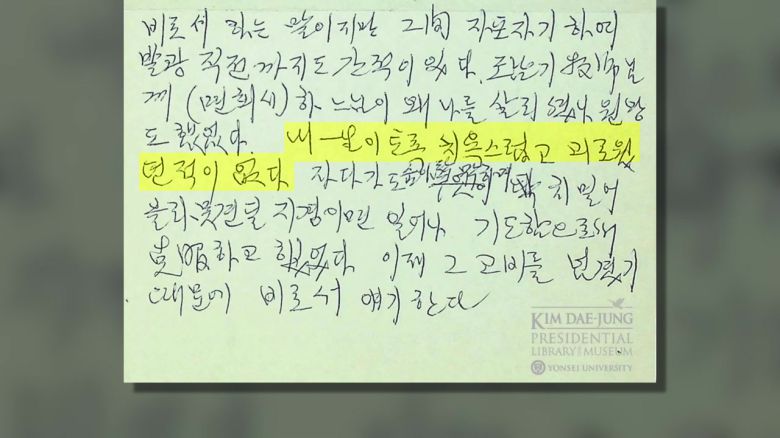 비로서 하는 말이지만 그때 자포자기하여
발광 직전까지도 간적이 있다.
께 (면회시) 하느님이 왜 나를 살리 원망
도 했었다. 내 一生 이토록 치욕스럽고 괴로웠
던 적이 없다 자다가도 치밀어
지경이면 일어나 기도함으로써
克服하고 했었다 이제 그 고비를 넘겼기
때문에 비로서 얘기한다
KIM DAE-JUNG
PRESIDENTIAL
LIBRARY AND MUSEUM
YONSEI UNIVERSITY